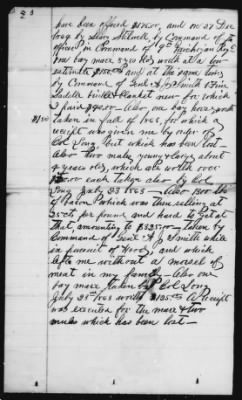 have been offered $175.00, and on 27 Dec
by Command of
officer in Command of 9" Michigan
one bay mare 3 yr old with a low
estimate $150.00 and at the same time
by Command of Genl A J Smith
saddle bridle blanket for which
I paid $40.00 - Also, one bay horse
taken in fall of 1863, for which a
receipt was given me by order of
Col Long but which has been lost -
Also two mules young & large about
4 years old, which were worth over
each taken also by Col
Long July 23 1863 - Also 1300 lbs
of Bacon which was then selling at
25 cts per pound and hard to get at
that, amounting to $325.00 - taken by
Command of Genl A J Smith while
in pursuit of Hood, and which
left me without a morsel of
meat in my family - Also one
bay mare taken by Col Long
July 23d 1863 worth $125.00 A receipt
was executed for the mare & two
mules which has been lost -